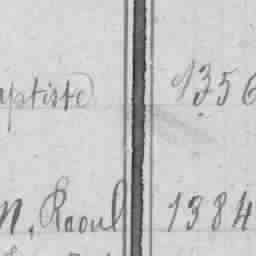 aptiste 1356
n, Raoul 1384